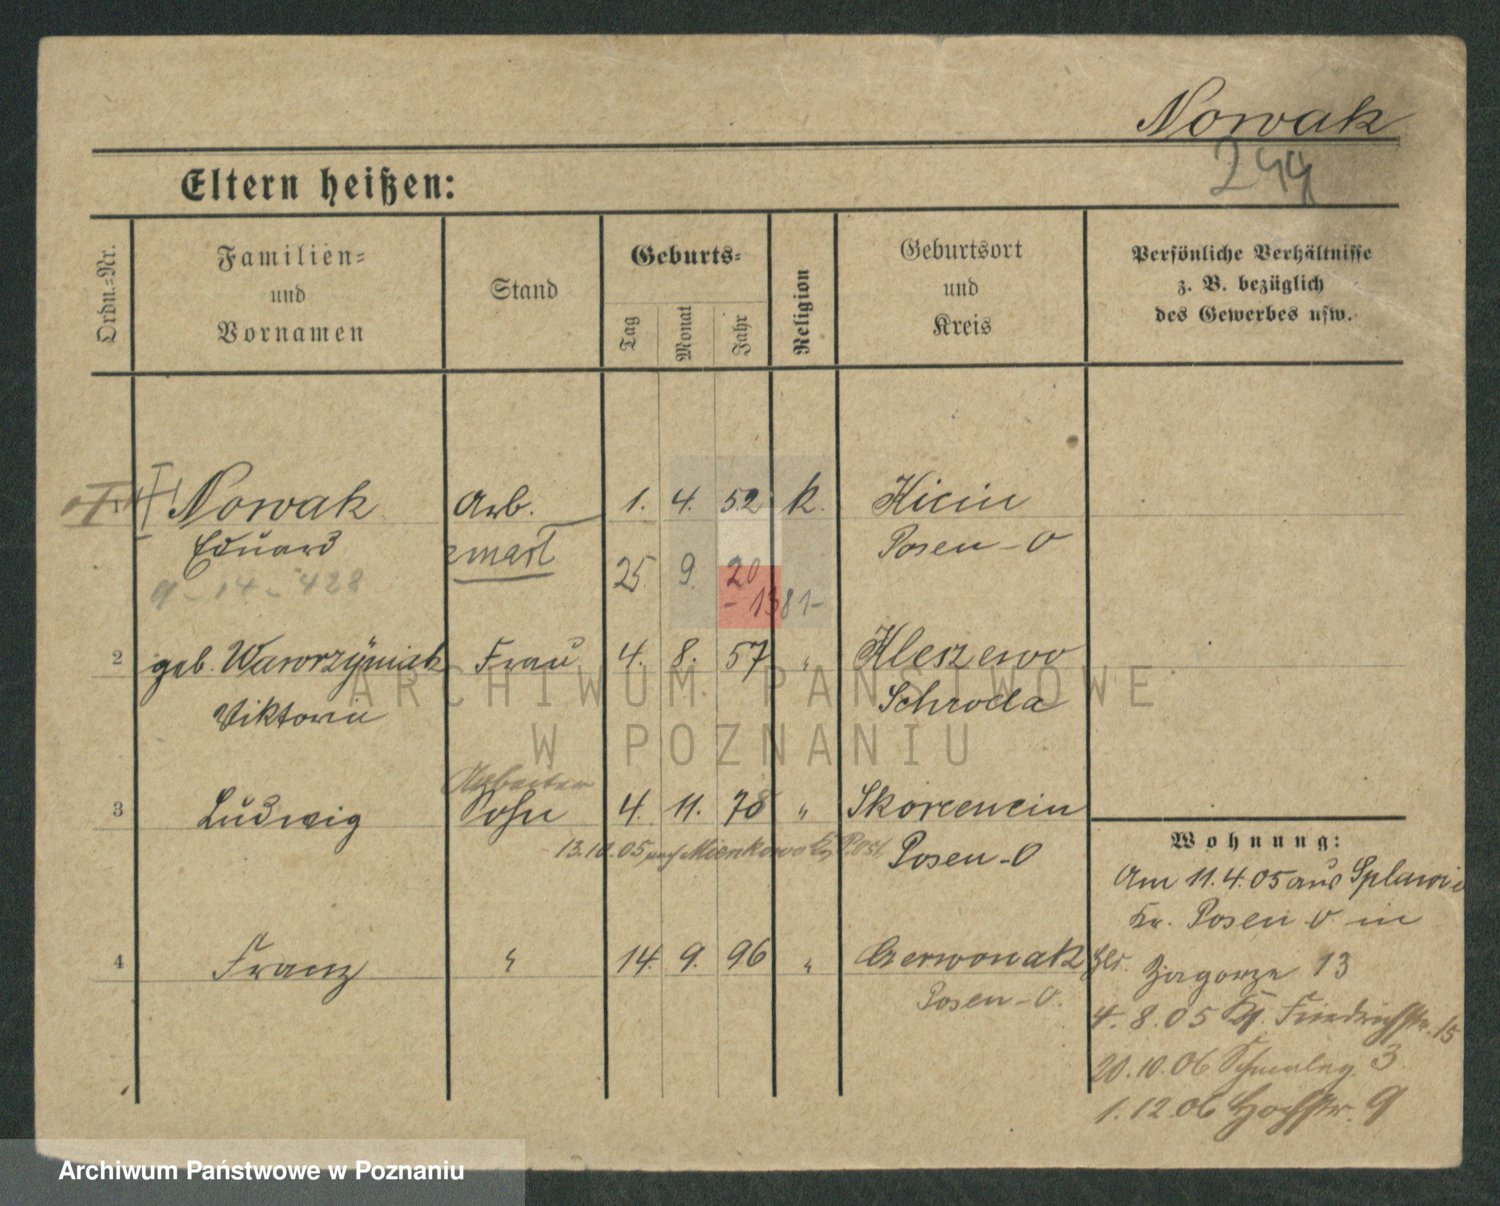 Nowak
244
Eltern heißen:
Ordn.-Nr.
Familien-
und
Vornamen
Stand
Geburts-
Tag
Monat
Jahr
Religion
Geburtsort
und
Kreis
Persönliche Verhältnisse
z. B. bezüglich
des Gewerbes usw.
Nowak Arb. 1. 4. 52 k. Kicin
Eduard Posen-O
25 9. 20
9-14-428
- 1381-
2 geb. Wawrzyniak Frau 4. 8. 57 " Kleszewo
Viktoria Schroda
Arbeiter
3 Ludwig Sohn 4. 11. 78 " Skorcencin
13.10.05 nach Posen-O
4 Franz " 14. 9. 96 " Czerwonak
Posen-O.
Wohnung:
Am 11.4.05 aus Splawie
Kr. Posen O. in
Zagorze 13
4.8.05 Friedrichstr. 15
20.10.06 3.
1.12.06 9
ARCHIWUM PAŃSTWOWE
W POZNANIU
Archiwum Państwowe w Poznaniu